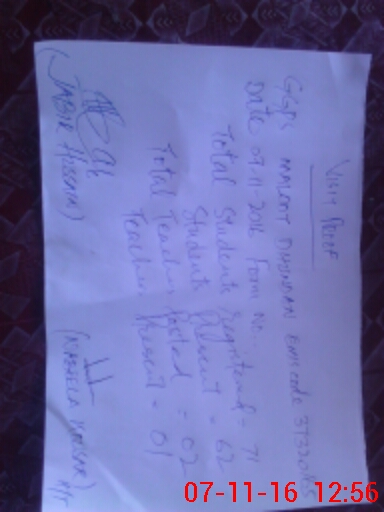 VISIT PROOF
GGPS MALOOT DHUNDAN EMIS code
Date 07-11-2016 Form No.
Total Students Registered = 71
Students Present = 62
Total Teacher Posted = 02
Teacher Present = 01
(JABIR HUSSAIN)
(NABEELA KAUSAR)
07-11-16 12:56